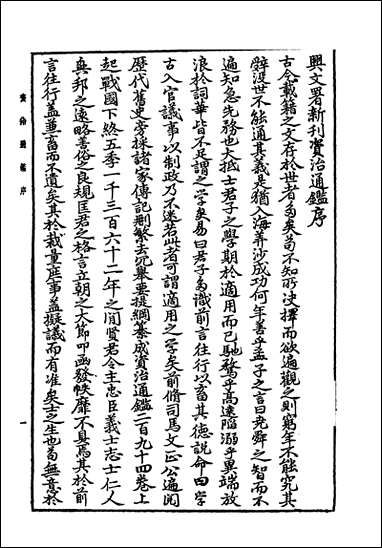 興文署新刊資治通鑑序
古今載籍之文存於世者多矣苟不知所決擇而欲遍觀之則窮年不能究其
辭沒世不能通其義是猶入海筭沙成功何年善乎孟子之言曰堯舜之智而不
遍知急先務也大抵士君子之學期於適用而已馳騖乎高遠陷溺乎異端放
浪於詞華皆不足謂之學矣易曰君子多識前言往行以畜其德說命曰學
古入官議事以制政乃不迷若此者可謂適用之學矣前脩司馬文正公遍閱
歷代舊史旁採諸家傳記刪繁去冗舉要提綱纂成資治通鑑二百九十四卷上
起戰國下終五季一千三百六十二年之間賢君令主忠臣義士志士仁人
興邦之遠略善俗之良規匡君之格言立朝之大節叩函發帙靡不具焉其於前
言往行蓋兼畜而不遺矣其於裁量庶事蓋擬議而有准矣士之生也苟無意於
資治通鑑序
一